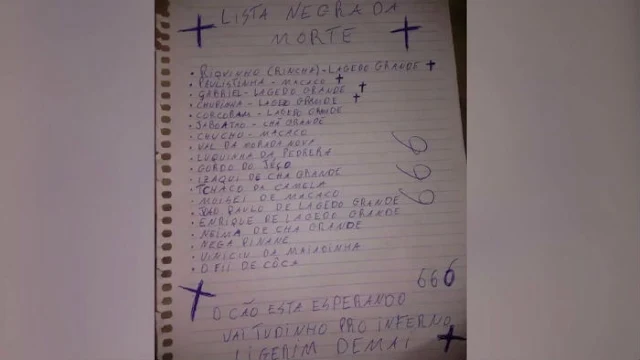 LISTA NEGRA DA
MORTE
• RIQUINHO (RINCHA) - LAGEDO GRANDE
• PAULISTINHA - MACACO
• GABRIEL - LAGEDO GRANDE
• CHUPINHA - LAGEDO GRANDE
• CORCORAN - LAGEDO GRANDE
• JABOATÃO - CHÃ GRANDE
• CHUCHO - MACACO
• VAL DA MORADA NOVA
• LUQUINHA DA PEDRERA
• GORDO DO
• IZAQUI DE CHÃ GRANDE
• TCHACO DA CAMELA
• MOISEI DE MACACO
• JÃO PAULO DE LAGEDO GRANDE
• ENRIQUE DE LAGEDO GRANDE
• NEIMA DE CHÃ GRANDE
• NEGA
• VINICIU DA MAIADINHA
• O FII DE CÔCA
666
666
O CÃO ESTA ESPERANDO
VAI TUDINHO PRO INFERNO
LIGERIM DEMAI